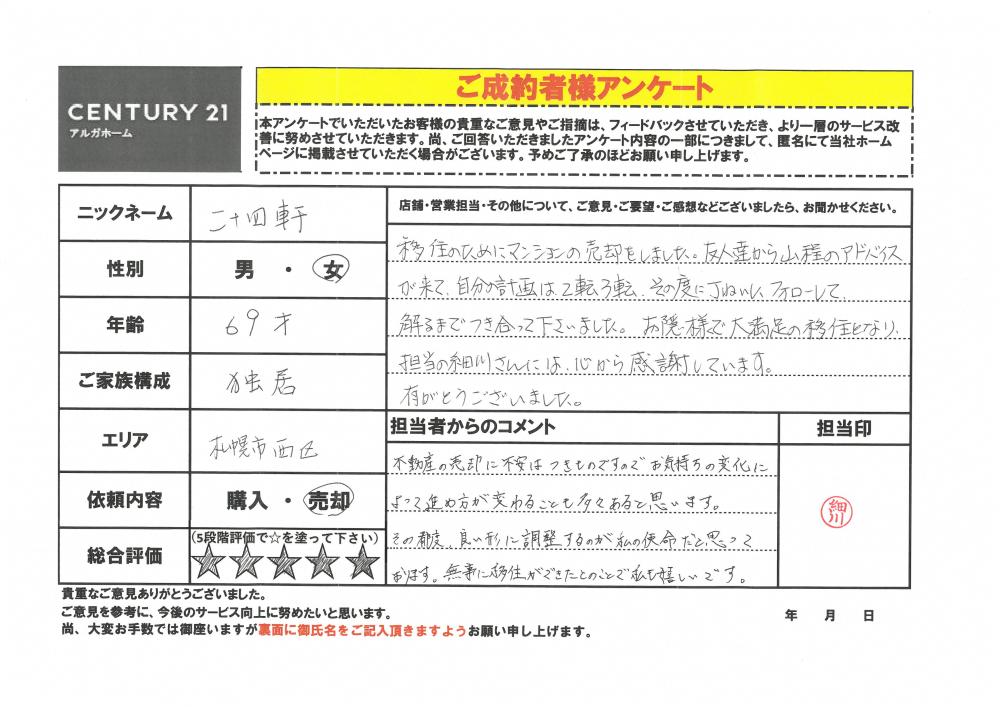 CENTURY 21
アルガホーム
ご成約者様アンケート
本アンケートでいただいたお客様の貴重なご意見やご指摘は、フィードバックさせていただき、より一層のサービス改
善に努めさせていただきます。尚、ご回答いただきましたアンケート内容の一部につきまして、匿名にて当社ホーム
ページに掲載させていただく場合がございます。予めご了承のほどお願い申し上げます。
ニックネーム
二十四軒
性別
男 ・ 女
年齢
69才
ご家族構成
独居
エリア
札幌市西区
依頼内容
購入 ・ 売却
総合評価
(5段階評価で☆を塗って下さい)
★★★★★
店舗・営業担当・その他について、ご意見・ご要望・ご感想などございましたら、お聞かせください。
移住のためにマンションの売却をしました。友人達から山程のアドバイス
が来て、自分の計画は2転3転、その度に丁ねいにフォローして、
解るまでつき合って下さいました。お隠様で大満足の移住となり、
担当の細川さんには、心から感謝しています。
有がとうございました。
担当者からのコメント
不動産の売却に不安はつきものですのでお気持ちの変化に
よって進め方が変わることも多々あると思います。
その都度、良い形に調整するのが私の使命だと思って
おります。無事に移住ができたとのことで私も嬉しいです。
担当印
細川
貴重なご意見ありがとうございました。
ご意見を参考に、今後のサービス向上に努めたいと思います。
尚、大変お手数では御座いますが裏面に御氏名をご記入頂きますようお願い申し上げます。
年 月 日